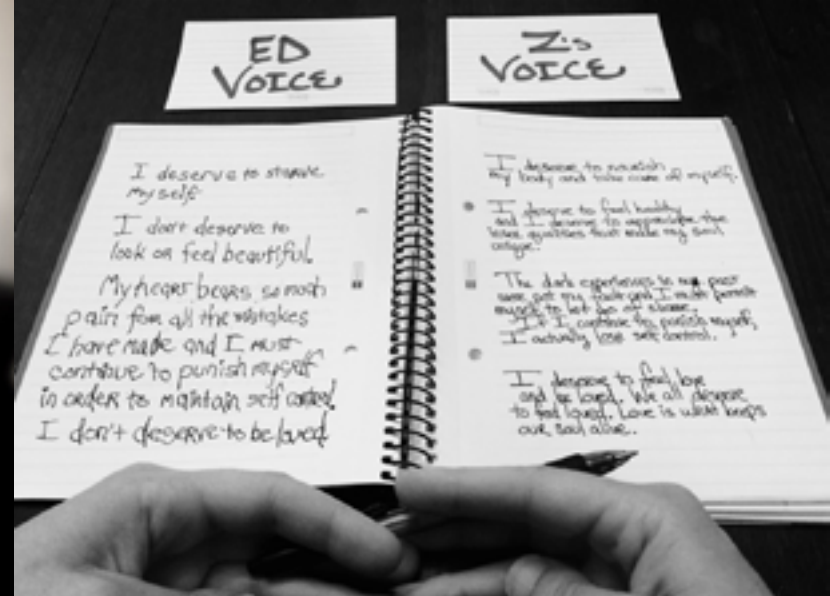 ED
VOICE
Z's
VOICE
I deserve to starve
myself.
I don't deserve to
look or feel beautiful.
My heart bears so much
pain for all the mistakes
I have made and I must
continue to punish myself
in order to maintain self control.
I don't deserve to be loved
I deserve to nourish
my body and take care of myself.
I deserve to feel healthy
and I deserve to appreciate the
qualities that make my soul
unique.
The dark experiences in my past
were not my fault and I must permit
myself to let go of shame.
If I continue to punish myself,
I actually lose self control.
I deserve to feel love
and be loved. We all deserve
to feel loved. Love is what keeps
our soul alive.